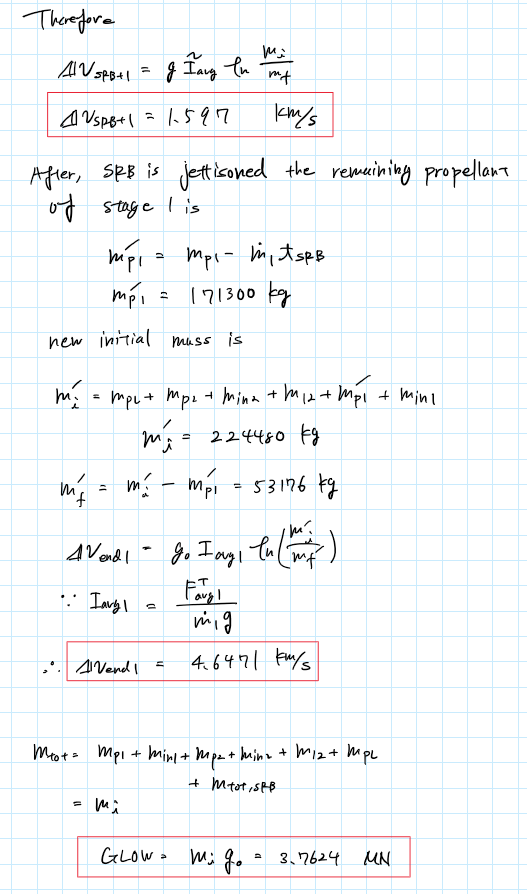 Therefore
ΔV_SRB+1 = g Ĩ_avg ln m_i/m_f
ΔV_SRB+1 = 1.597 km/s
After, SRB is jettisoned the remaining propellant
of stage 1 is
m′_p1 = m_p1 - ṁ_1 t_SRB
m′_p1 = 171300 kg
new initial mass is
m′_i = m_PL + m_p2 + m_in2 + m_12 + m′_p1 + m_in1
m′_i = 224480 kg
m′_f = m′_i - m′_p1 = 53176 kg
ΔV_end1 = g_0 I_avg1 ln(m′_i/m′_f)
∵ I_avg1 = F^T_avg1/ṁ_1 g
∴ ΔV_end1 = 4.6471 km/s
m_tot = m_p1 + m_in1 + m_p2 + m_in2 + m_12 + m_PL
+ m_tot,SRB
= m_i
GLOW = m_i g_0 = 3.7624 MN